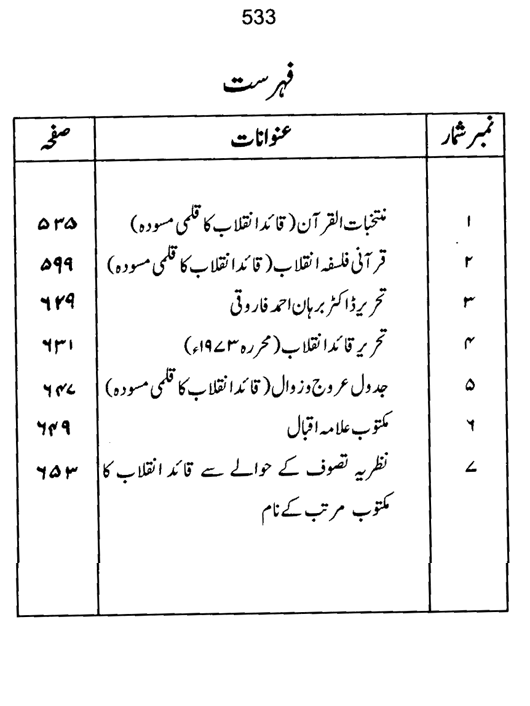 533
فہرست
نمبر شمار	عنوانات	صفحہ
۱	منتخبات القرآن (قائد انقلاب کا قلمی مسودہ)	۵۳۵
۲	قرآنی فلسفہ انقلاب (قائد انقلاب کا قلمی مسودہ)	۵۹۹
۳	تحریر ڈاکٹر برہان احمد فاروقی	۶۲۹
۴	تحریر قائد انقلاب (محررہ ۱۹۷۳ء)	۶۳۱
۵	جدول عروج و زوال (قائد انقلاب کا قلمی مسودہ)	۶۴۷
۶	مکتوب علامہ اقبال	۶۴۹
۷	نظریہ تصوف کے حوالے سے قائد انقلاب کا	۶۵۳
مکتوب مرتب کے نام